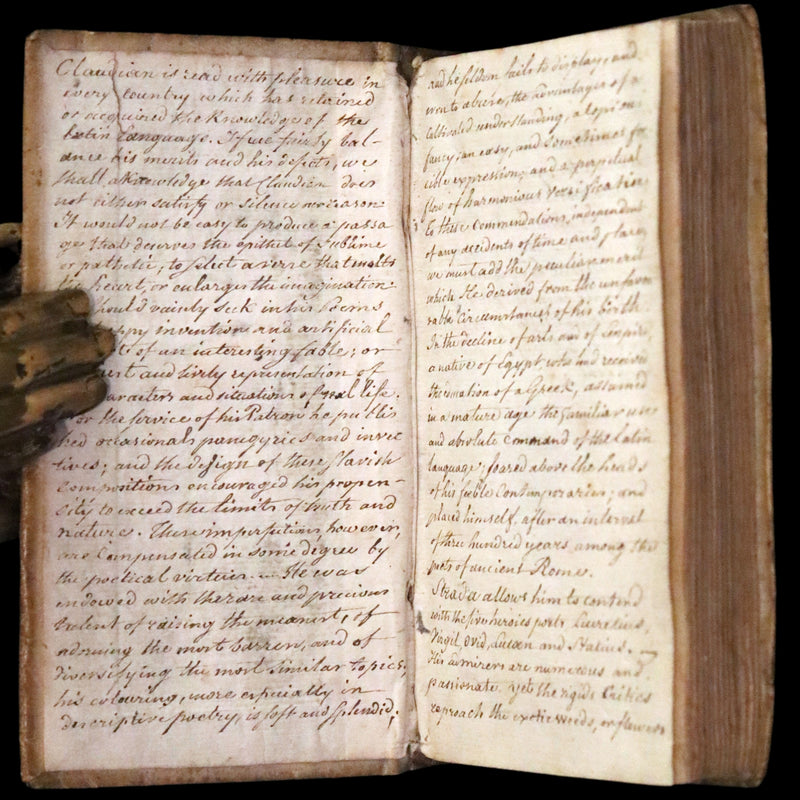 Claudian is read with pleasure in
every country which has retained
or acquired the knowledge of the
Latin Language. If we fairly bal-
ance his merits and his defects, we
shall acknowledge that Claudian does
not either satisfy or silence our reason.
It would not be easy to produce a passa
ge that deserves the epithet of sublime
or pathetic; to select a verse that melts
the heart, or enlarges the imagination.
should vainly seek in his Poems
happy invention and artificial
of an interesting fable; or
just and lively representation of
characters and situations of real life.
For the service of his Patron he publis
hed occasional panegyrics and invec
tives; and the design of these slavish
compositions encouraged his propen-
sity to exceed the limits of truth and
nature. These imperfections, however,
are Compensated in some degree by
the poetical virtues. He was
endowed with the rare and precious
talent of raising the meanest, of
adorning the most barren, and of
diversifying the most similar topics;
his colouring, more especially in
descriptive poetry, is soft and splendid;
and he seldom fails to display, and
even to abuse, the advantages of a
Cultivated understanding, a copious
fancy, an easy, and sometimes for
cible expression; and a perpetual
flow of harmonious versification
To these commendations, independent
of any accidents of time and place,
we must add the peculiar merit
which He derived from the unfavo
rable Circumstances of his birth
In the decline of arts and of empire
a native of Egypt, who had received
the education of a Greek, assumed
in a mature age the familiar use
and absolute command of the Latin
language; soared above the heads
of his feeble Contemporaries; and
placed himself, after an interval
of three hundred years among the
poets of ancient Rome.
Strada allows him to contend
with the five heroics poets Lucretius,
Virgil, Ovid, Lucan and Statius.
His admirers are numerous and
passionate. yet the rigids Critics
reproach the exotic weeds, or flowers